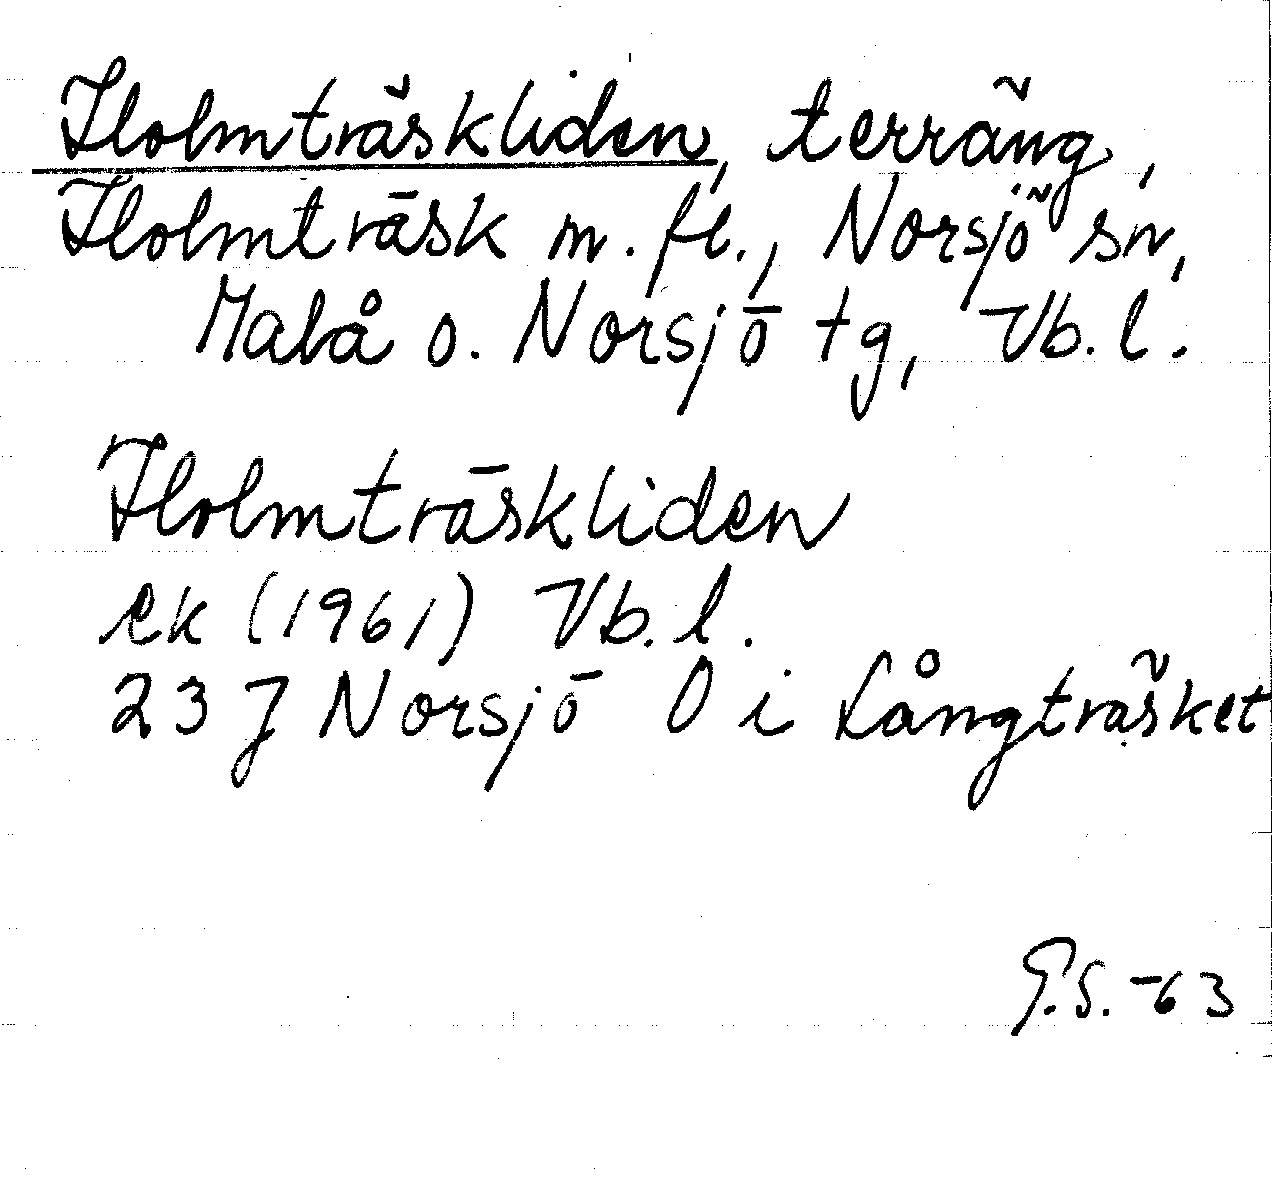 Holmträskliden, terräng,
Holmträsk m. fl., Norsjö sn,
Malå o. Norsjö tg, Vb. l.
Holmträskliden
ek (1961) Vb. l.
23 J Norsjö O i Långträsket
G.S. -63